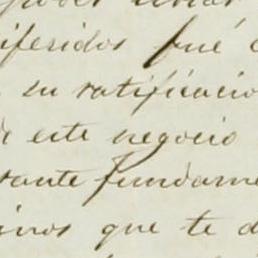 poder
iferidos fué
su ratificacio
este negocio
tante fundame
inos que te d